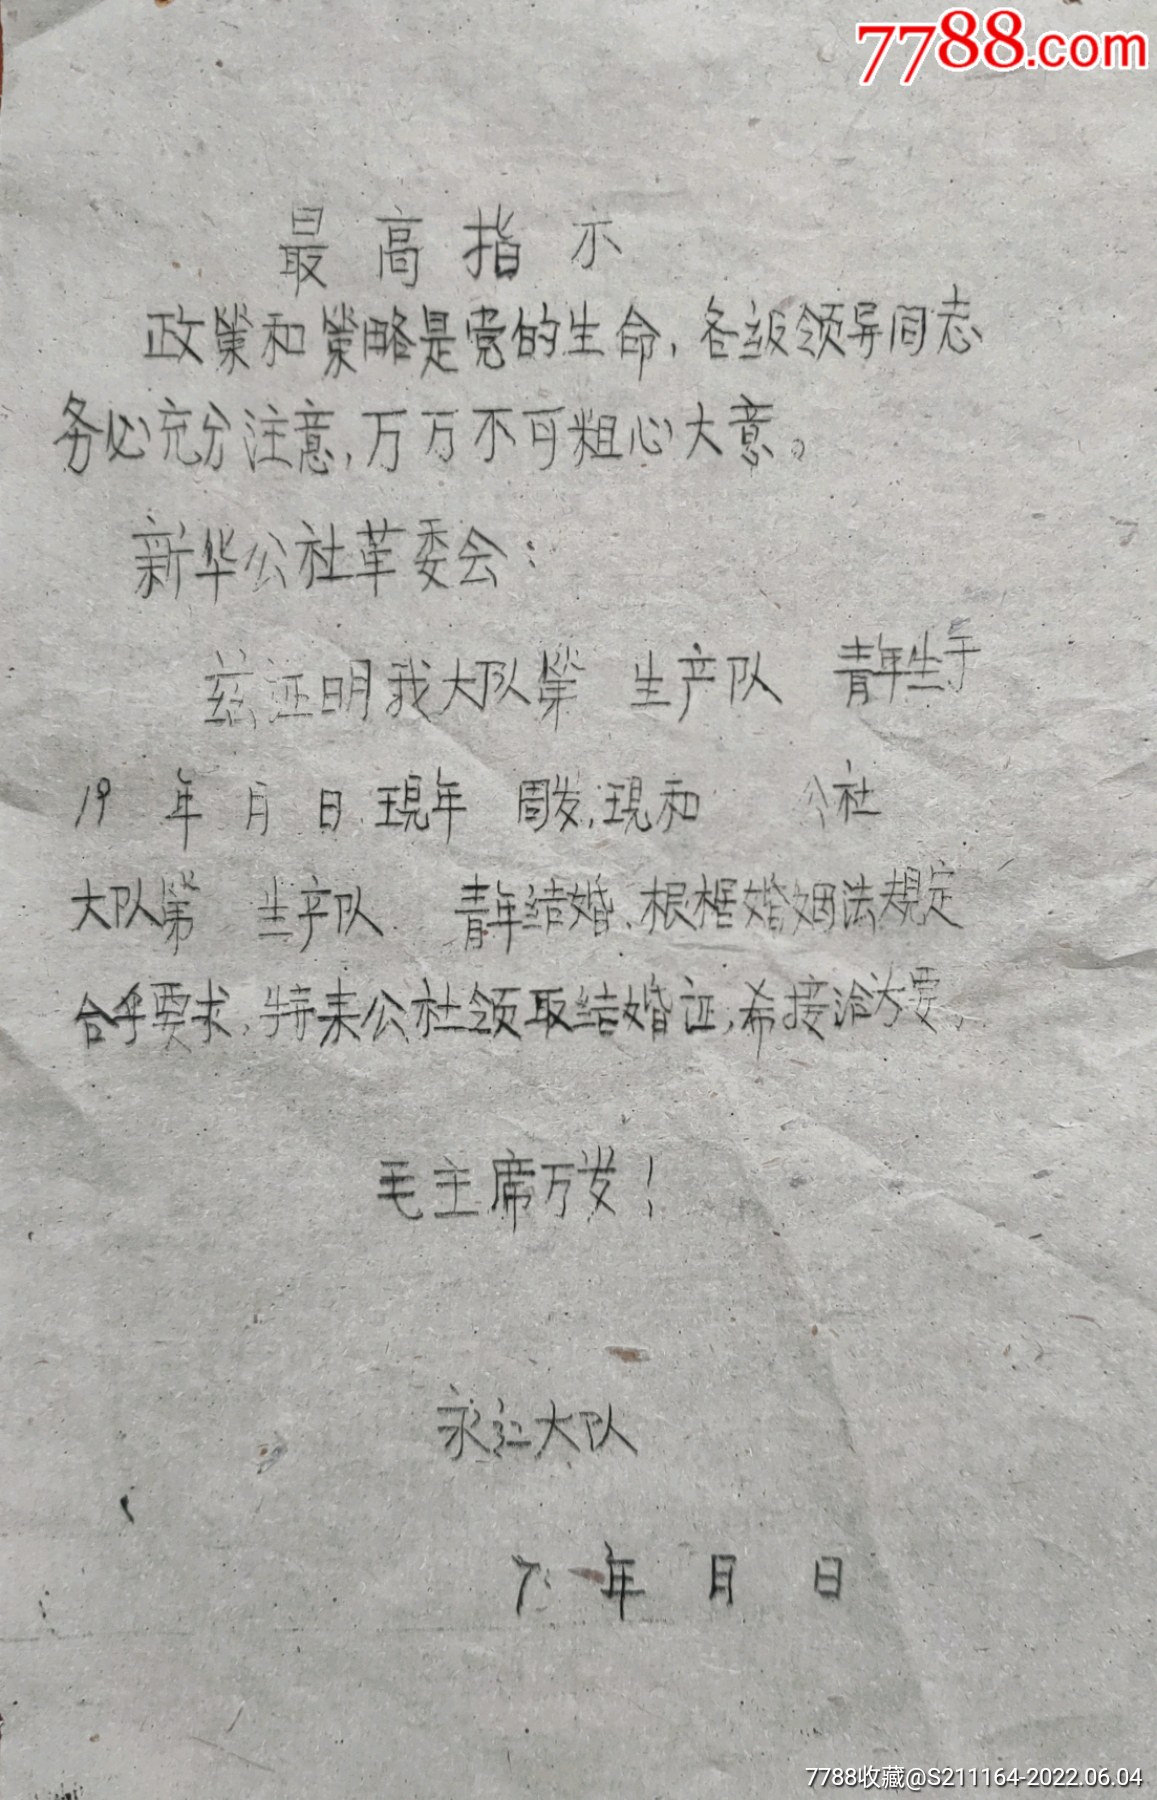 7788.com
最高指示
政策和策略是党的生命，各级领导同志
务必充分注意，万万不可粗心大意。
新华公社革委会：
兹证明我大队第 生产队 青年生于
19 年 月 日，现年 周岁，现和 公社
大队第 生产队 青年结婚、根据婚姻法规定
合乎要求，特来公社领取结婚证，希接洽为要。
毛主席万岁！
永红大队
7 年 月 日
7788收藏@S211164-2022.06.04